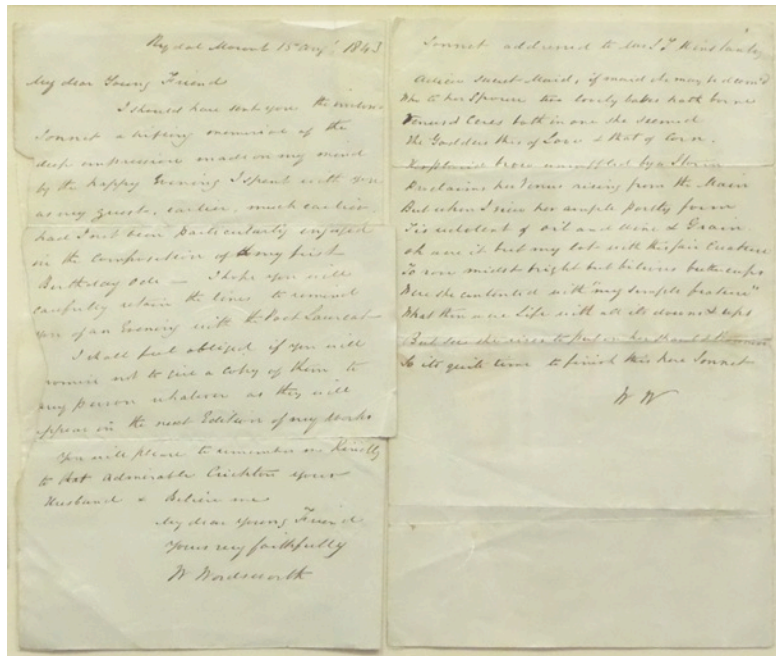 Rydal Mount 15 Augt 1843
My dear Young Friend
I should have sent you the inclosed
Sonnet a trifling memorial of the
deep impression made on my mind
by the happy Evening I spent with you
as my guests, earlier, much earlier,
had I not been particularly engaged
in the composition of my first
Birthday Ode — I hope you will
carefully retain the lines to remind
you of an Evening with the Poet Laureat
I shall feel obliged if you will
promise not to give a copy of them to
any person whatever as they will
appear in the next Edition of my Works
You will please to remember me Kindly
to that Admirable Crichton your
Husband & Believe me
My dear Young Friend
Yours very faithfully
W Wordsworth
Sonnet addressed to Mrs
sweet Maid, if maid she may be deem'd
Who to her Spouse two lovely babes hath borne
Venus & Ceres both in one she seemed
The Goddess this of Love & that of Corn.
brow unruffled by a Storm
Declares her Venus rising from the Main
But when I view her ample portly form
Tis redolent of oil and wine & Grain.
Oh were it but my lot with this fair Creature
To rove midst bright but bilious buttercups
Were she contented with "my simple feature"
What then were Life with all its downs & ups
But see she rises to put on her Shawl & Bonnet
So its quite time to finish this here Sonnet
W W